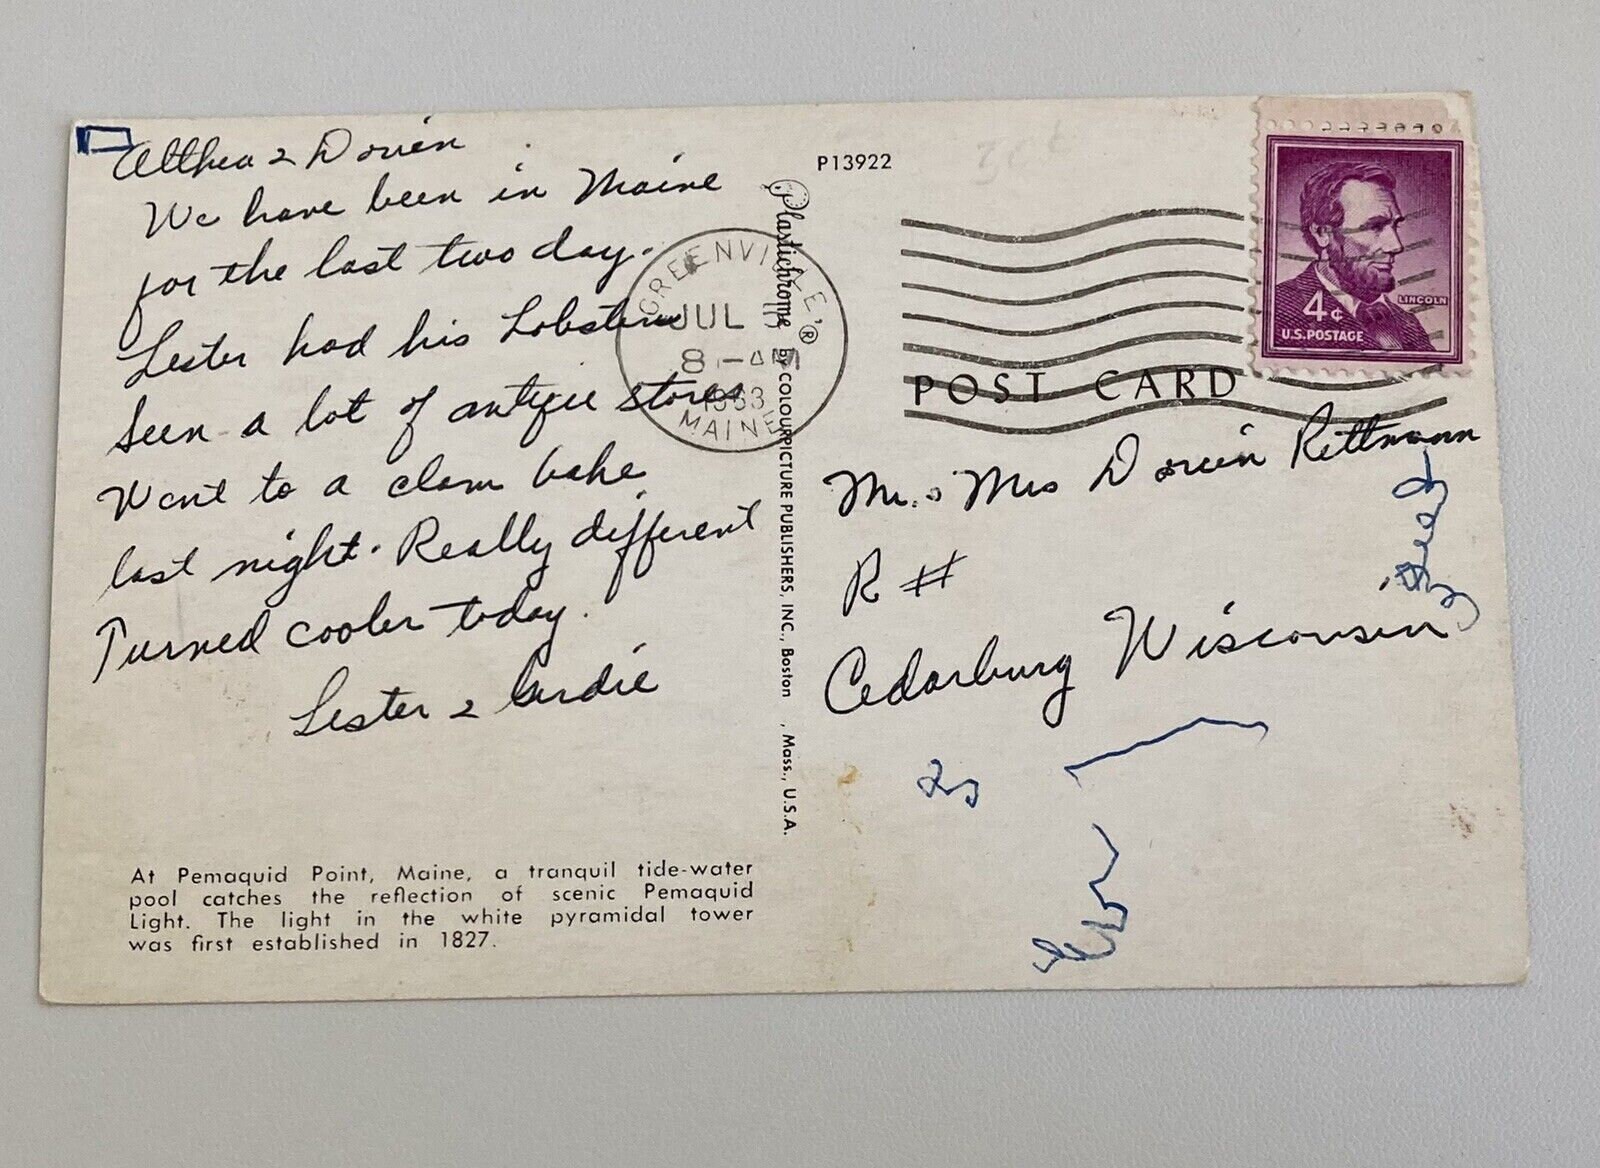 Althea & Dorien
We have been in Maine
for the last two day.
Lester had his Lobster
Seen a lot of antique stores
Went to a clam bake
last night. Really different
Turned cooler today.
Lester & Gerdie
At Pemaquid Point, Maine, a tranquil tide-water
pool catches the reflection of scenic Pemaquid
Light. The light in the white pyramidal tower
was first established in 1827.
Plastichrome® by COLOURPICTURE PUBLISHERS, INC., Boston, Mass., U.S.A.
P13922
GREENVILLE
JUL
8 - AM
1963
MAINE
4¢
LINCOLN
U.S. POSTAGE
POST CARD
Mr. & Mrs Dorien Rettmann
R #
Cedarburg Wisconsin